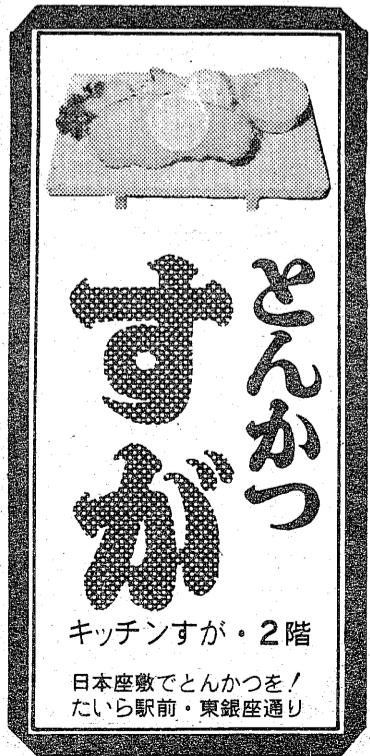 とんかつ
すが
キッチンすが・2階
日本座敷でとんかつを！
たいら駅前・東銀座通り